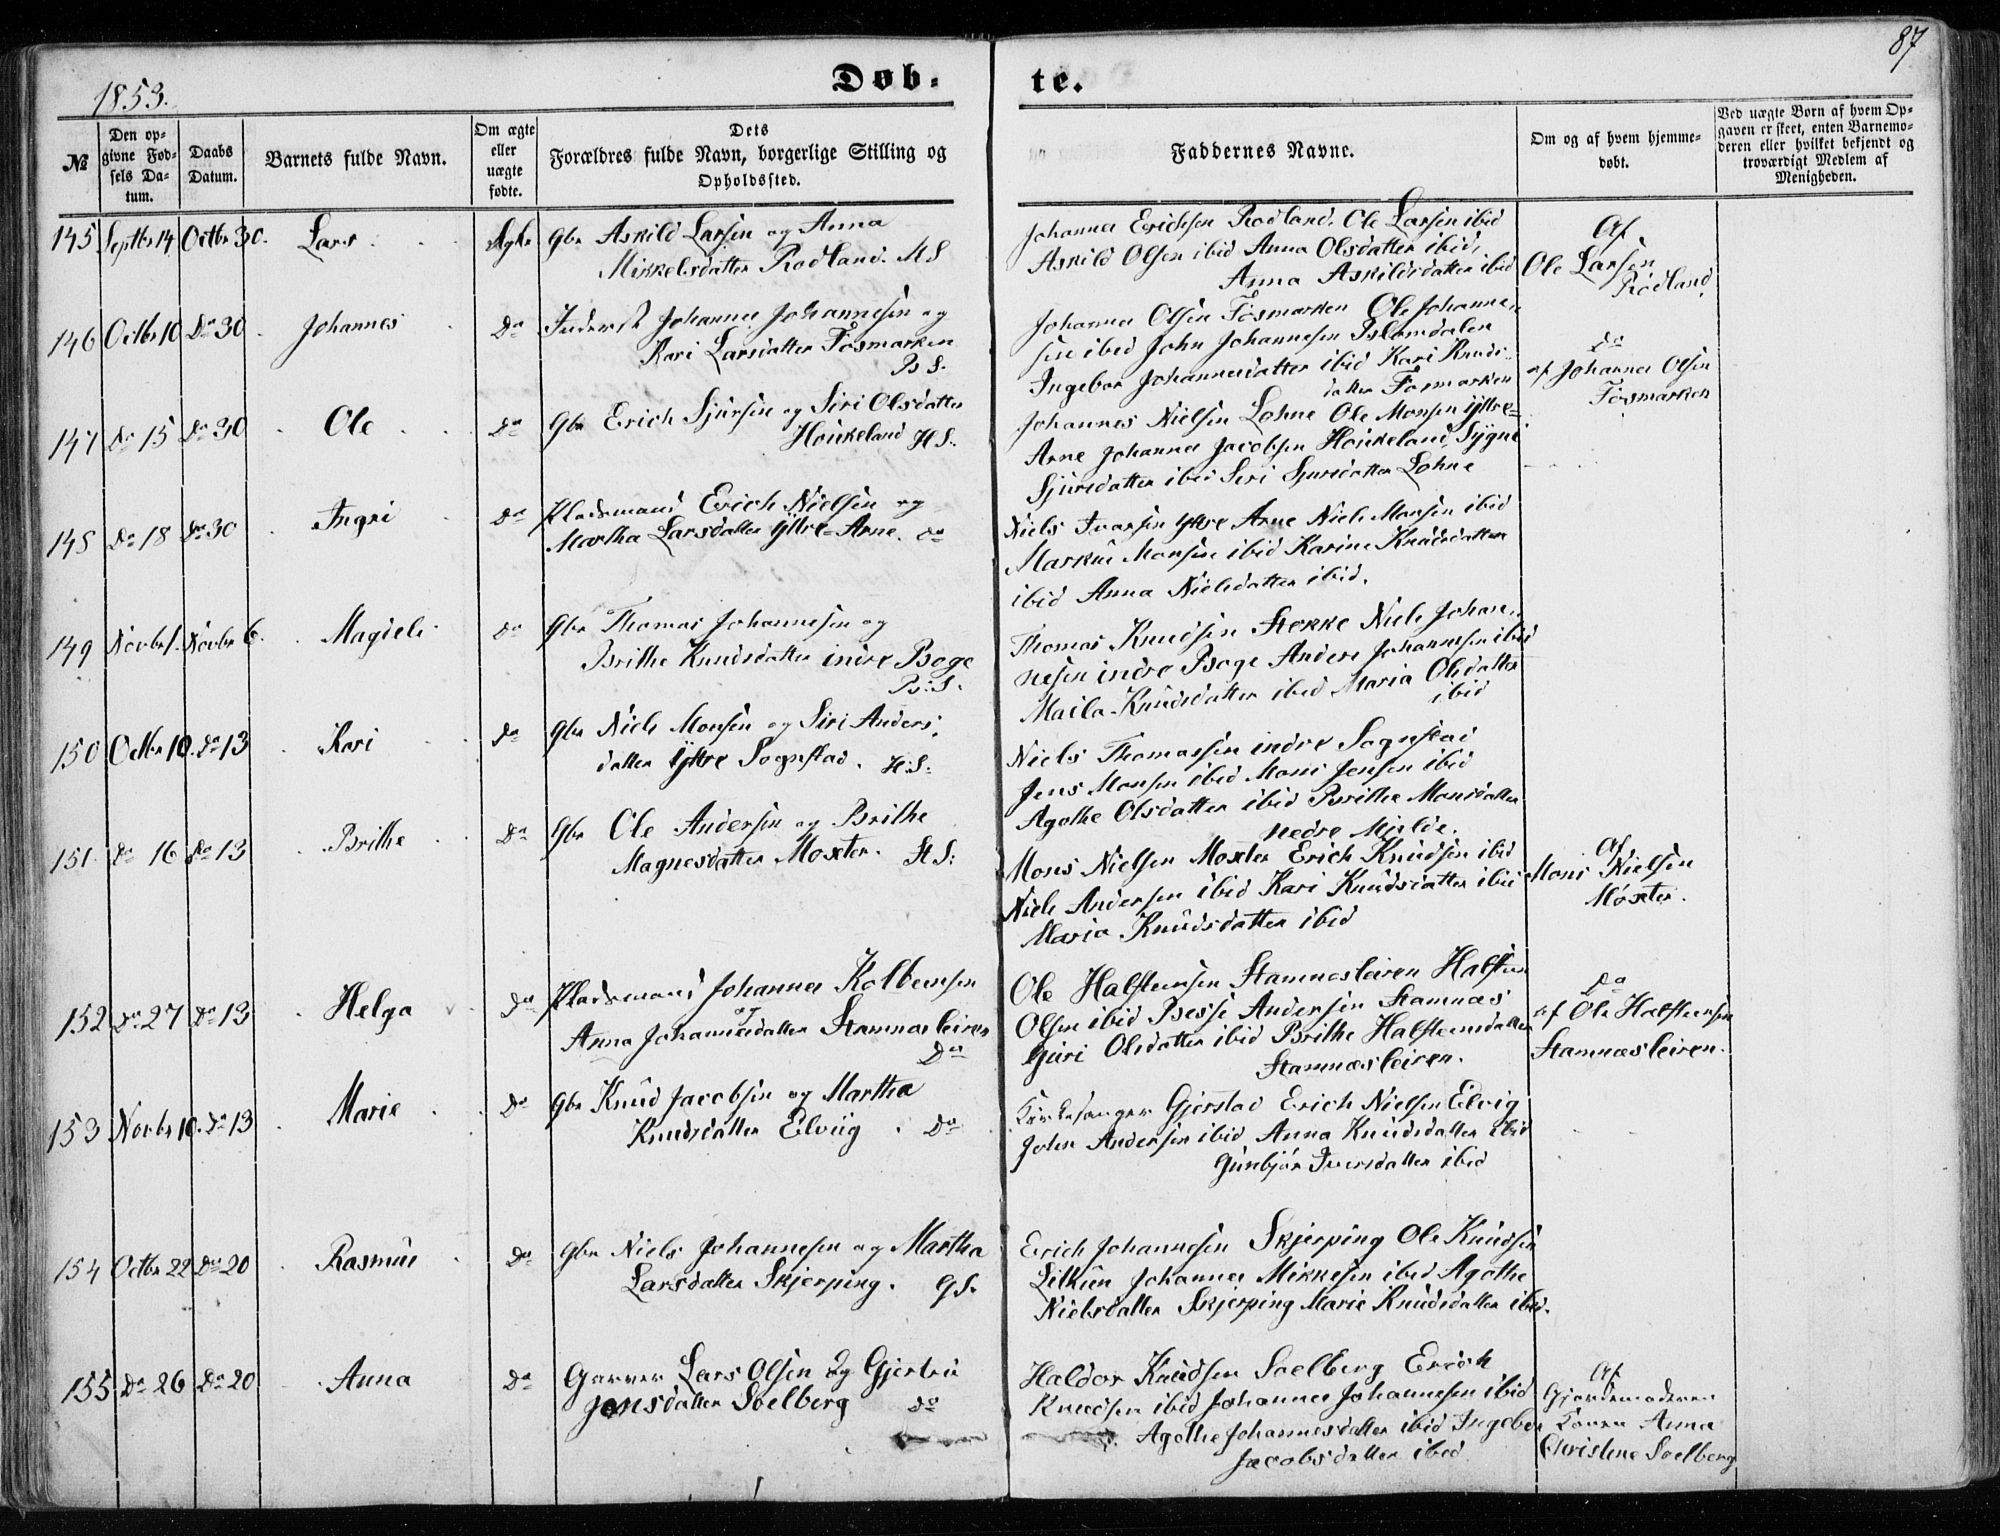 87
1853.
Døb-
te.
№
Den op-
givne Fød-
sels Da-
tum.
Daabs
Datum.
Barnets fulde Navn.
Om ægte
eller
uægte
fødte.
Dets
Forældres fulde Navn, borgerlige Stilling og
Opholdssted.
Faddernes Navne.
Om og af hvem hjemme-
døbt.
Ved uægte Børn af hvem Op-
gaven er skeet, enten Barnemo-
deren eller hvilket bekjendt og
troværdigt Medlem af
Menigheden.
145 Septbr 14 Octbr 30. Lars Ægte Gbr Askild Larsen og Anna
Mikkelsdatter Rødland. HS
Johannes Erichsen Rødland. Ole Larsen ibid
Askild Olsen ibid Anna Olsdatter ibid,
Anna Askildsdatter ibid
Af
Ole Larsen
Rødland.
146 Octbr 10 Do 30 Johannes Do Inderst Johannes Johannesen og
Kari Larsdatter Fosmarken
B S.
Johannes Olsen Fosmarken Ole Johanne-
sen ibid John Johannesen Blomdalen
Ingebor Johannesdatter ibid Kari Knuds-
datter Fosmarken
do
af Johannes Olsen
Fosmarken
147 Do 15 Do 30 Ole Do Gbr Erich Sjursen og Siri Olsdatter
Houkeland HS.
Johannes Nielsen Lohne Ole Monsen Yttre-
Arne Johannes Jacobsen Houkeland Sygni
Sjursdatter ibid Siri Sjursdatter Lohne
148 Do 18 Do 30 Ingri Do Pladsmand Erich Nielsen og
Martha Larsdatter Yttre-Arne. do
Niels Ivarsen Yttre Arne Niels Monsen ibid
Markus Monsen ibid Karine Knudsdatter
ibid Anna Nielsdatter ibid.
149 Novbr 1. Novbr 6. Magdeli Do Gbr Thomas Johannesen og
Brithe Knudsdatter indre Boge
B.S.
Thomas Knudsen Stokke Niels Johan-
nesen indre Boge Anders Johannesen ibid
Maila Knudsdatter ibid Maria Olsdatter
ibid
150 Octbr 10. Do 13 Kari Do Gbr Niels Monsen og Siri Anders-
datter Yttre Sognstad. H.S.
Niels Thomassen indre Sognstad
Jens Monsen ibid Mons Jensen ibid
Agathe Olsdatter ibid Brithe Monsdatter
nedre Mjelde.
151. Do 16 Do 13 Brithe Do Gbr Ole Andersen og Brithe
Magnesdatter Moxter. HS.
Mons Nielsen Moxter Erich Knudsen ibid
Niels Andersen ibid Kari Knudsdatter ibid
Maria Knudsdatter ibid
Af
Mons Nielsen
Moxter.
152 Do 27 Do 13 Helga Do Pladsmand Johannes Kolbensen
og
Anna Johannesdatter Stamnesleiren
Do
Ole Halstensen Stamnesleiren Halsten
Olsen ibid Besse Andersen Stamnæs
Guri Olsdatter ibid Brithe Halstensdatter
Stamnæsleiren.
Do
af Ole Halstensen
Stamnæsleiren.
153 Novbr 10. Do 13 Marie Do Gbr Knud Jacobsen og Martha
Knudsdatter Elviig. Do
Kirkesanger Gjerstad Erich Nielsen Elvig
John Andersen ibid Anna Knudsdatter ibid
Gunbjør Iversdatter ibid
154 Octbr 22 Do 20 Rasmus Do Gbr Niels Johannesen og Martha
Larsdatter Skjerping. GS.
Erich Johannesen Skjerping Ole Knudsen
Litlun Johannes Mikkesen ibid Agathe
Nielsdatter Skjerping Marie Knudsdatter ibid.
155 Do 26 Do 20 Anna Do Garver Lars Olsen og Gjertru
Jonsdatter Soelberg do
Haldor Knudsen Soelberg Erich
Knudsen ibid Johannes Johannesen ibid
Agothe Johannesdatter ibid Ingebor
Jacobsdatter ibid
Af
Gjordemoderen
Anna
Christene Soelberg